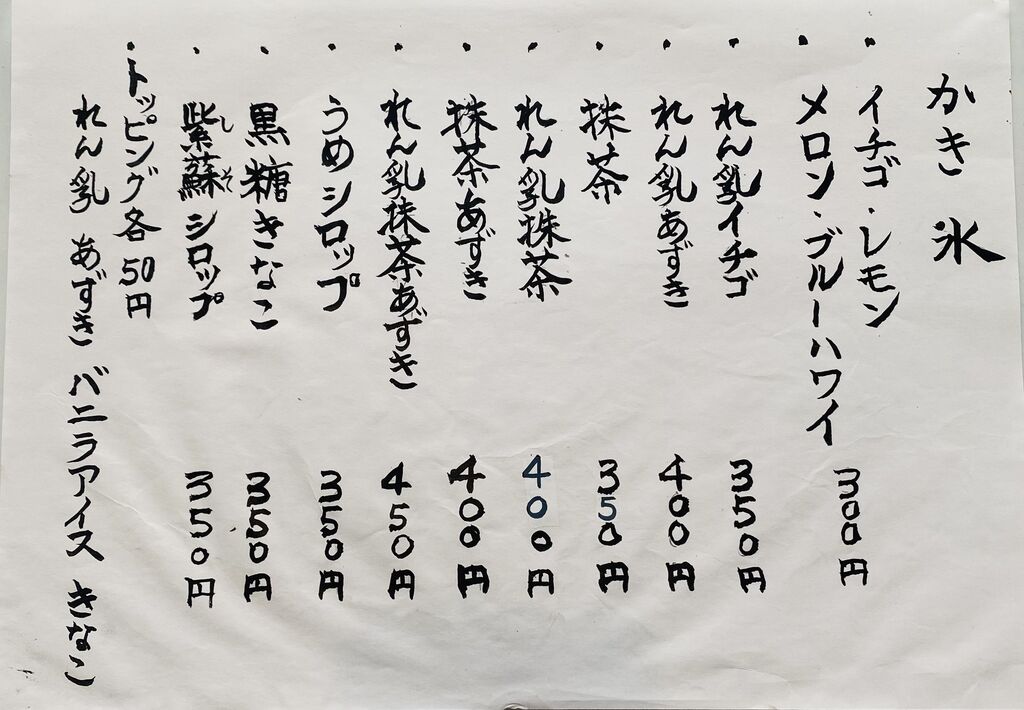 かき氷
・イチゴ・レモン
・メロン・ブルーハワイ 300円
・れん乳イチゴ 350円
・れん乳あずき 400円
・抹茶 350円
・れん乳抹茶 400円
・抹茶あずき 400円
・れん乳抹茶あずき 450円
・うめシロップ 350円
・黒糖きなこ 350円
・紫蘇シロップ 350円
しそ
・トッピング各50円
れん乳 あずき バニラアイス きなこ